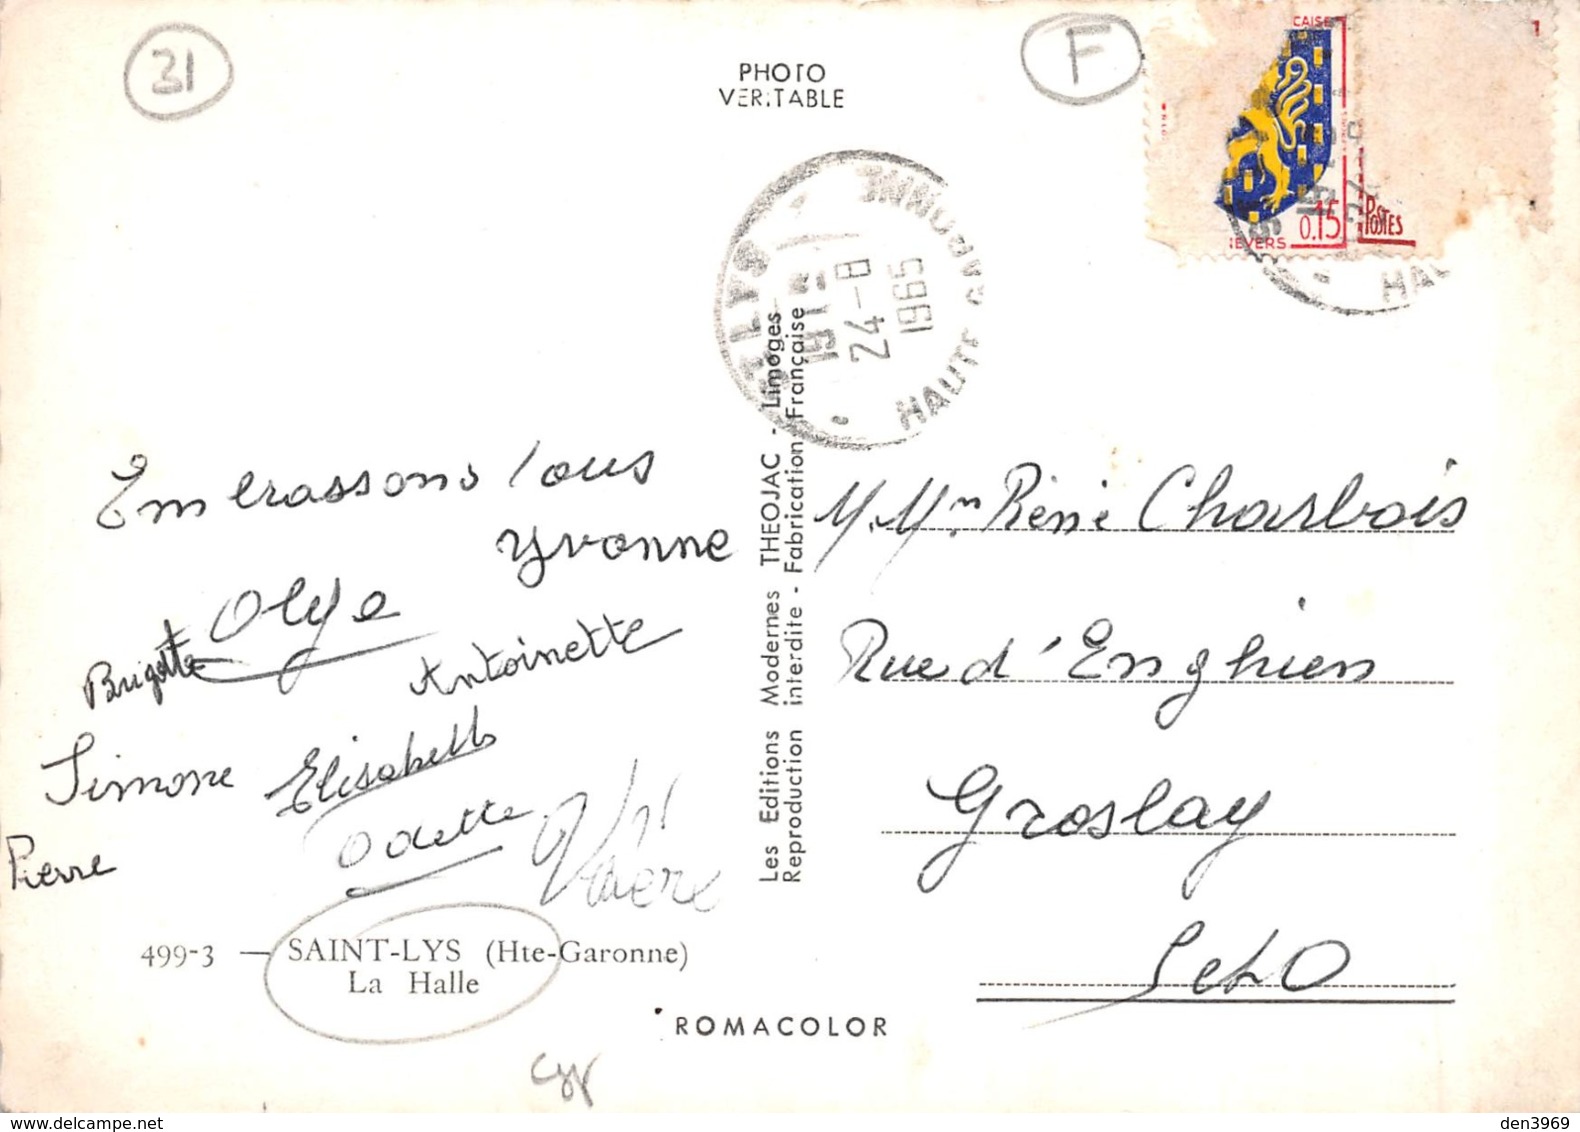 31
F
PHOTO
VERITABLE
CAISE
IEVERS 0.15
POSTES
1
ST LYS
HAUTE GARONNE
19 H
24 - 8
1965
HAU
Embrassons tous
Yvonne
Olga
Brigitte
Antoinette
Simone
Elisabeth
Odette
Pierre
499-3 — SAINT-LYS (Hte-Garonne)
La Halle
ROMACOLOR
Les Editions Modernes THEOJAC - Limoges
Reproduction interdite - Fabrication Française
M. Mme René Charbois
Rue d'Enghien
Groslay
S et O
den3969